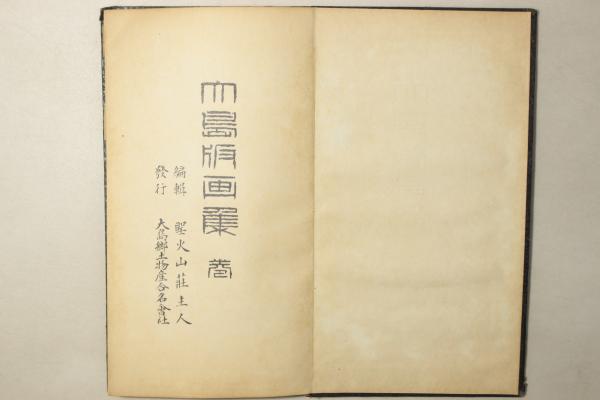 大島版画集 巻
編輯 聖火山荘主人
發行 大島郷土物産合名會社